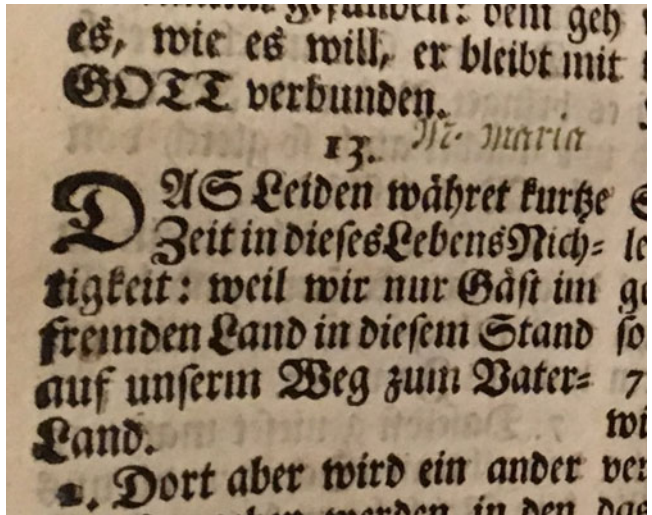 gefunden: dem geh
es, wie es will, er bleibt mit
GOTT verbunden.
13. M. maria
DAS Leiden währet kurtze
Zeit in dieses Lebens Nich-
tigkeit: weil wir nur Gäst im
fremden Land in diesem Stand
auf unserm Weg zum Vater-
Land.
2. Dort aber wird ein ander
werden in den
le
ge
so
7
wi
ver
das